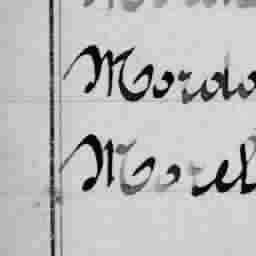 Mordo
Morel